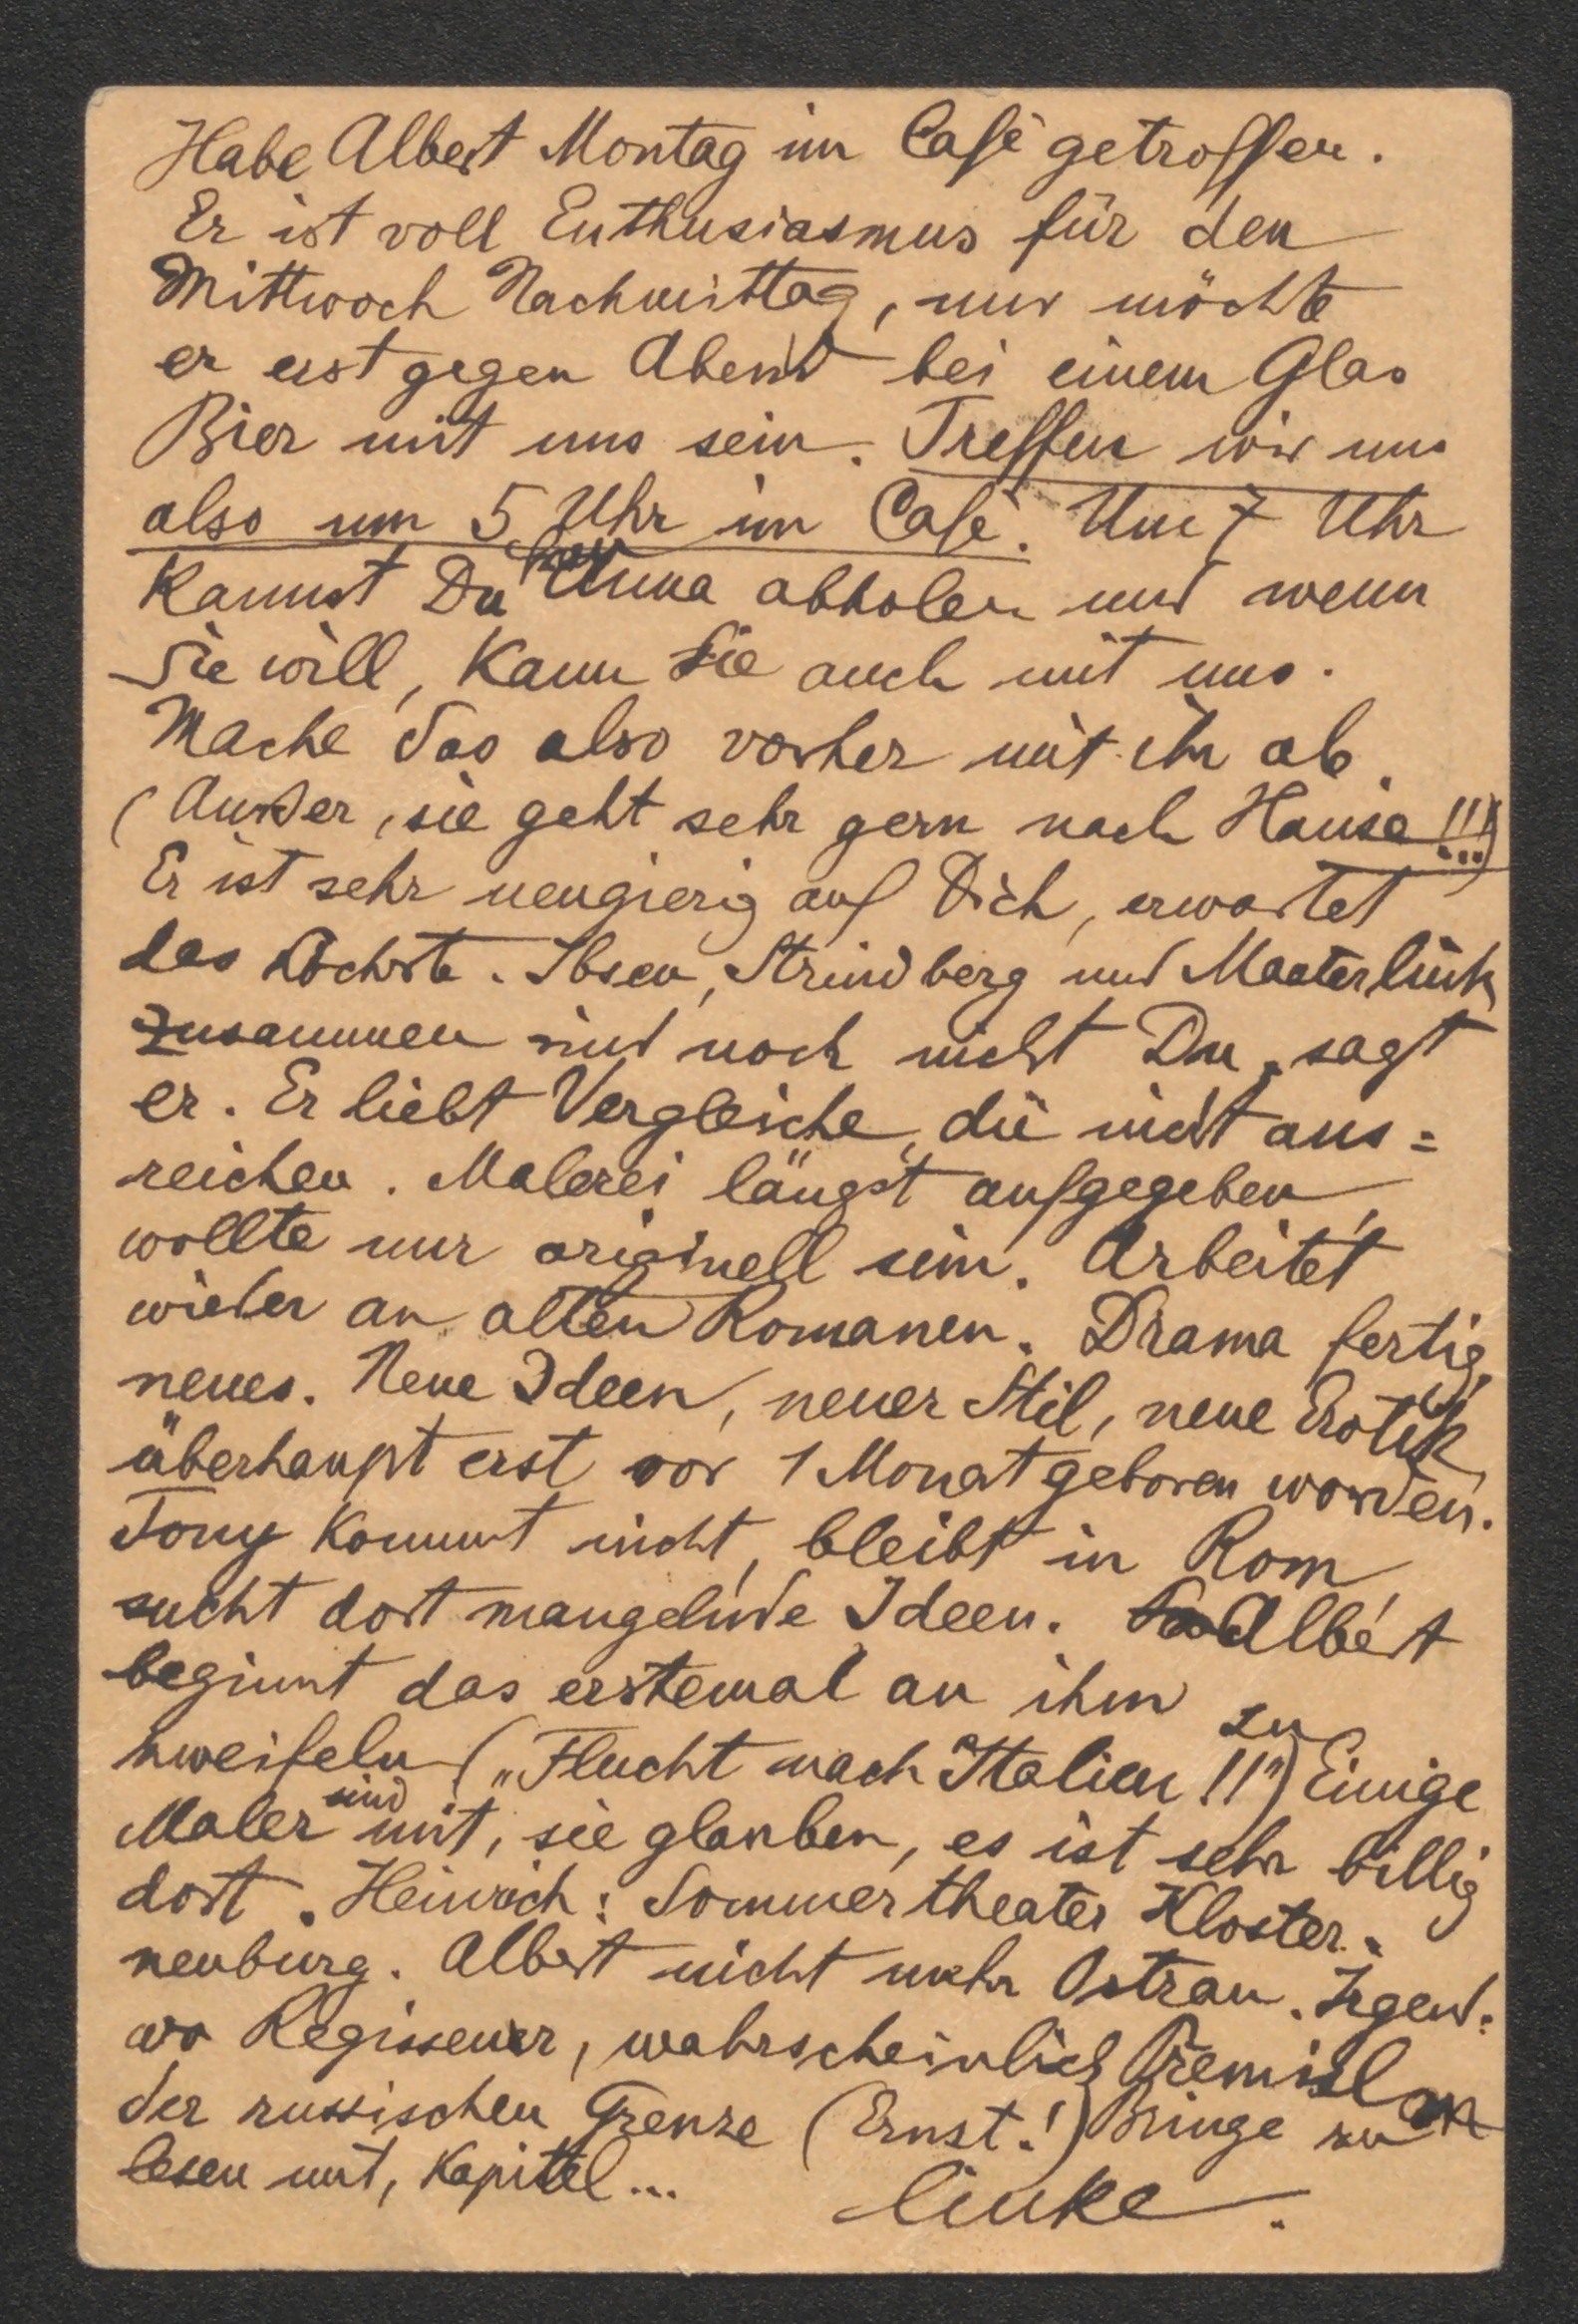 Habe Albert Montag im Café getroffen.
Er ist voll Enthusiasmus für den
Mittwoch Nachmittag, nur möchte
er erst gegen Abend bei einem Glas
Bier mit uns sein. Treffen wir uns
also um 5 Uhr im Café. Um 7 Uhr
kannst Du Anna abholen und wenn
sie will, kann sie auch mit uns.
Mache das also vorher mit ihr ab.
(Außer, sie geht sehr gern nach Hause!!!)
Er ist sehr neugierig auf Dich, erwartet
das Höchste. Ibsen, Strindberg und Maeterlink
zusammen sind noch nicht Du, sagt
er. Er liebt Vergleiche, die nicht aus=
reichen. Malerei längst aufgegeben,
wollte nur originell sein. Arbeitet
wieder an alten Romanen. Drama fertig,
neues. Neue Ideen, neuer Stil, neue Erotik,
überhaupt erst vor 1 Monat geboren worden.
Tony kommt nicht, bleibt in Rom
sucht dort mangelnde Ideen. Albert
beginnt das erstemal an ihm zu
zweifeln („Flucht nach Italien!!") Einige
Maler sind mit, sie glauben, es ist sehr billig
dort. Heinrich: Sommertheater Kloster-
neuburg. Albert nicht mehr Ostrau. Irgend-
wo Regisseur, wahrscheinlich Přemisl an
der russischen Grenze (Ernst!) Bringe zu
lesen mit, Kapittel...
linke.